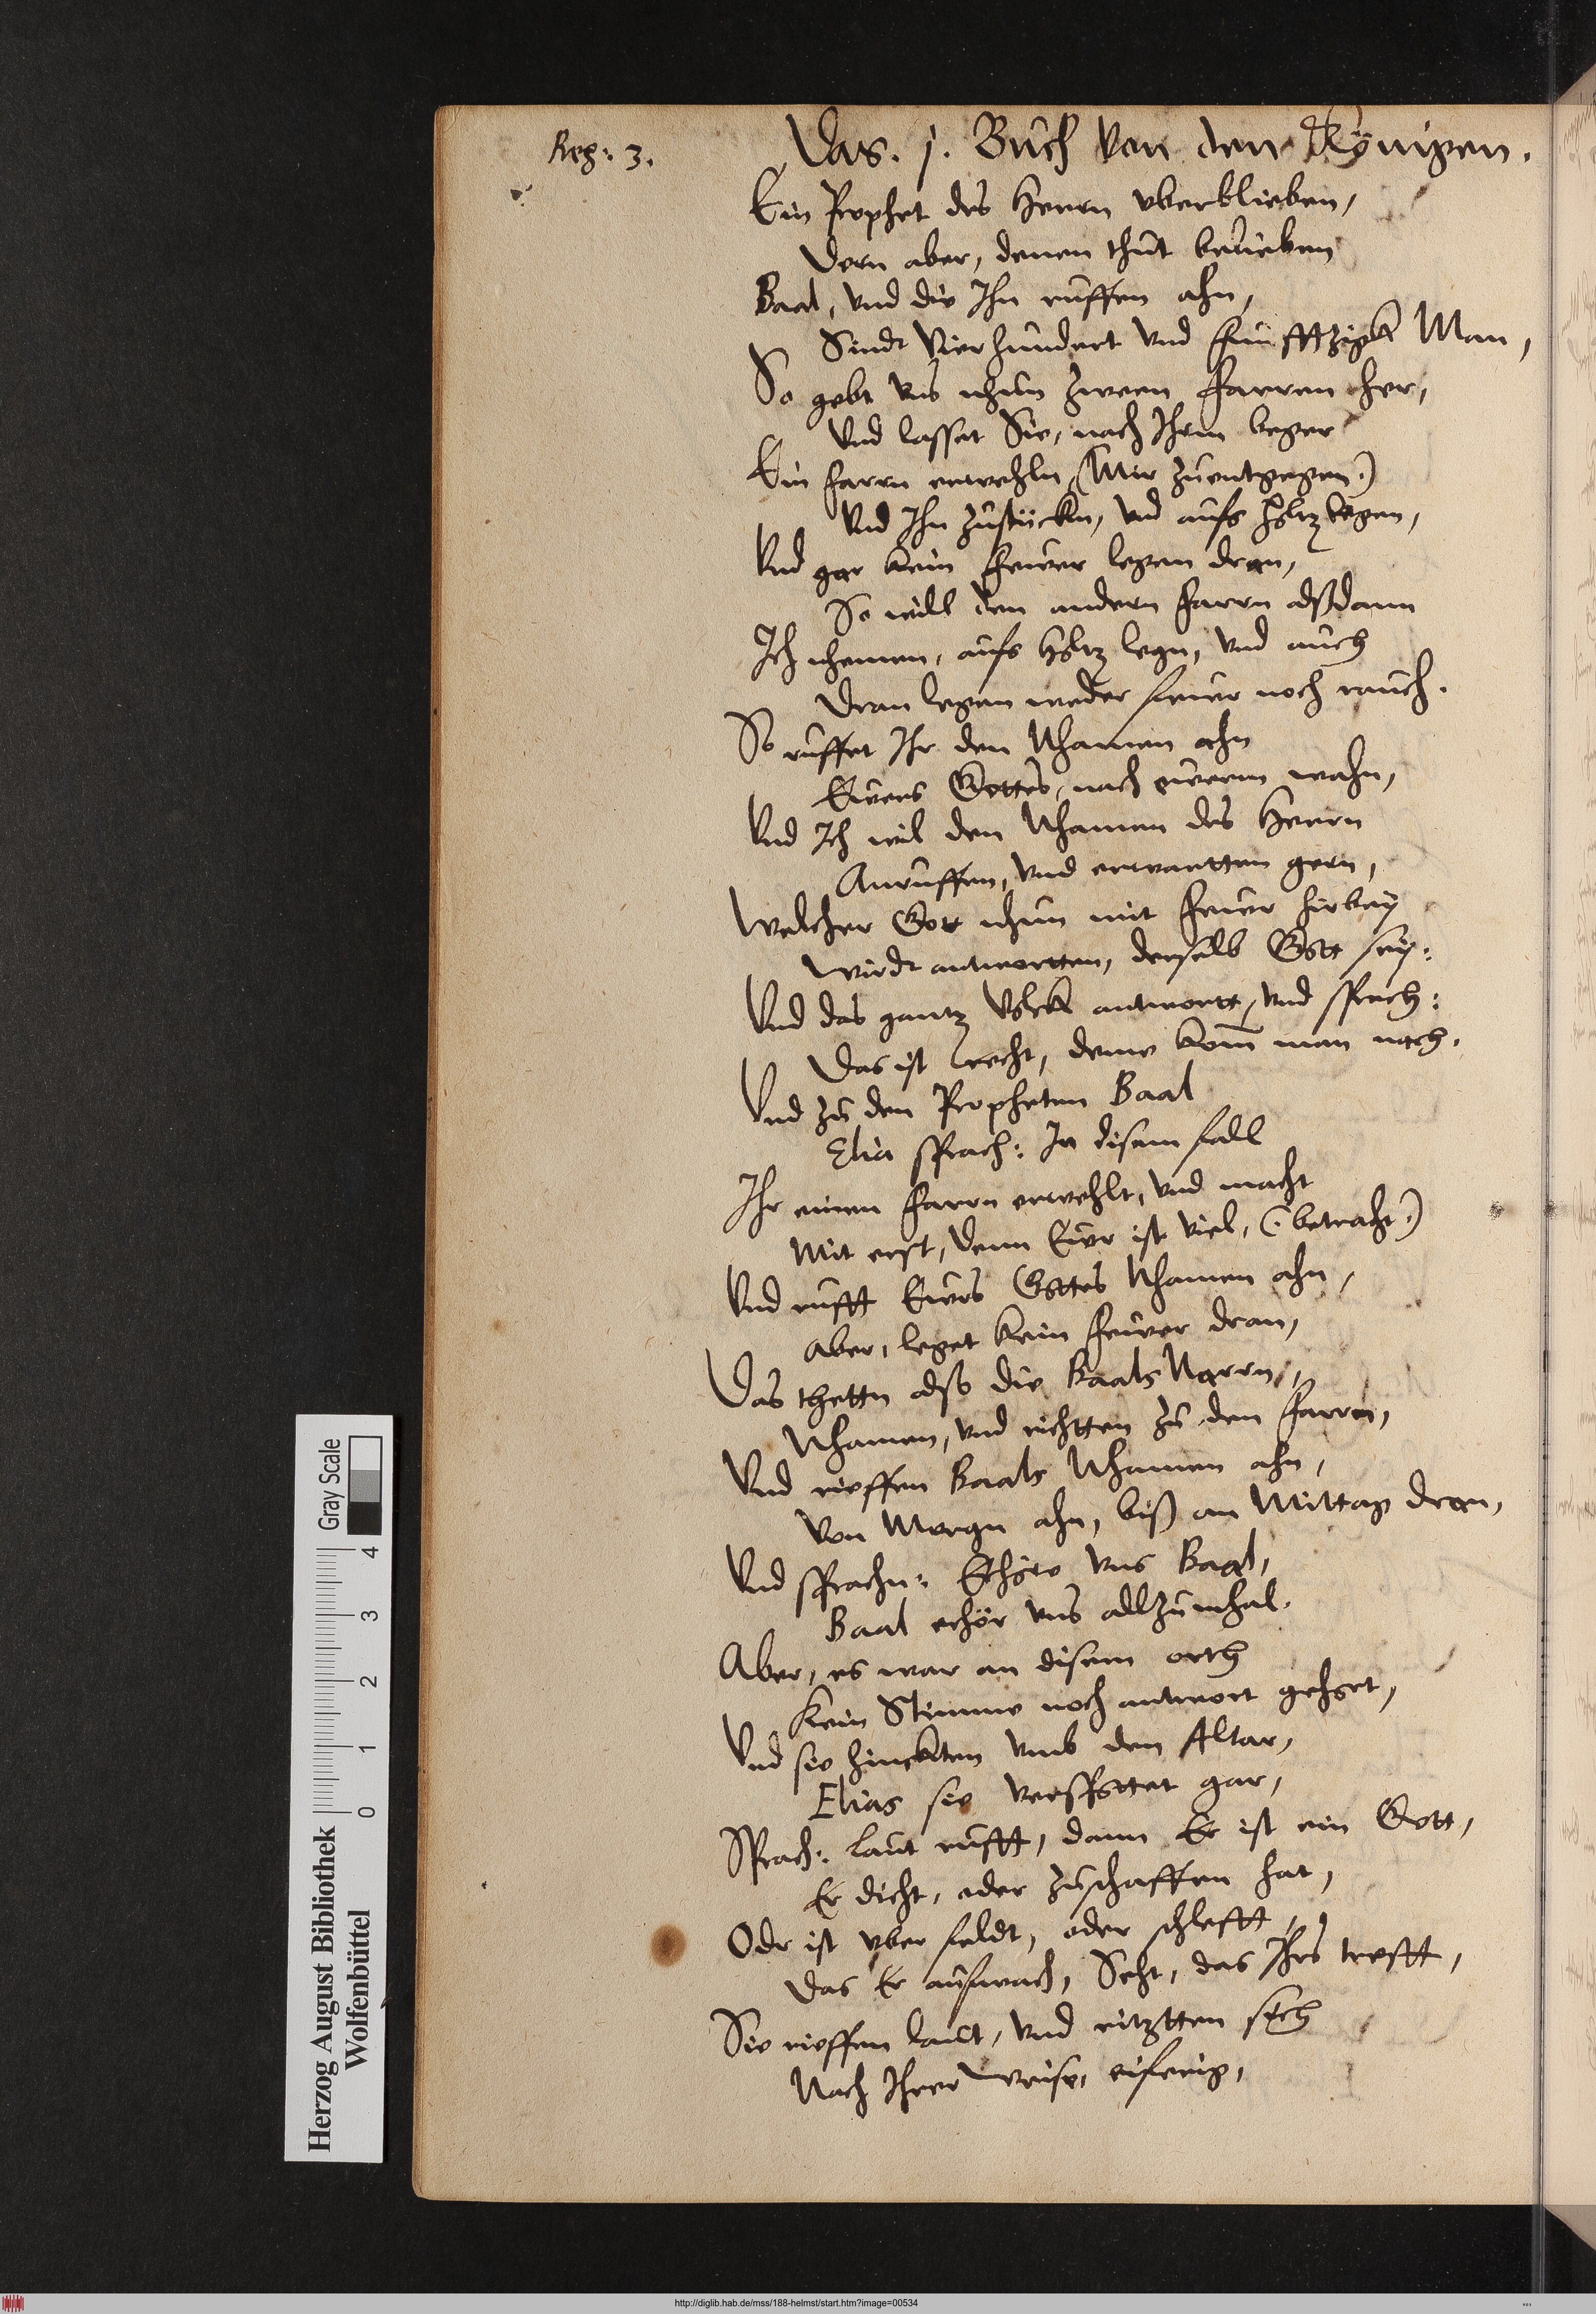 Reg: 3.
Das. j. Buch Von den Königen.
Ein Prophet des Herrn vberblieben,
Dern aber, denen thut belieben
Baal, vnd die Ihn ruffen ahn,
Sindt Vierhundert vnd funfftzigk Man,
So gebt vns nhun zween Farren her,
Vnd lasset Sie, nach Ihrm beger
Ein farrn erwehln (Mir zuentgegen.)
Vnd Ihn zustückn, vnd aufs holtz legen,
Vnd gar kein fewer legen dran,
So will den andern farrn alßdann
Ich nhemen, aufs holtz legn, vnd auch
Dran legen weder fewer noch rauch.
So ruffet Ihr den Nhamen ahn
Ewers Gottes, nach ewerm wahn,
Vnd Ich wil den Nhamen des Herrn
Anruffen, vnd erwartten gern,
Welcher Got nhun mit fewer hirbey
Wirdt antwortten, derselb Gott sey:
Vnd das gantz Volck antwortt, vnd sprach:
Das ist recht, deme kom̃ man nach.
Vnd zu den Propheten Baal
Elia sprach: In disem fall
Ihr einen farrn erwehlt, vnd macht
Mit erst, denn Ewr ist viel, (:betracht.)
Vnd rufft Ewrs Gottes Nhamen ahn,
Aber, leget kein fewer dran,
Das thettn also die Baals Narrn,
Nhamen, vnd richtten zu den farrn,
Vnd rieffen Baals Nhamen ahn,
Von Morgn ahn, biß an Mittag dran,
Vnd sprachn: Erhöre vns Baal,
Baal erhör vns allzumhal.
Aber, es war an disem orth
Kein Stimme noch antwort gehort,
Vnd sie hinckten vmb den Altar,
Elias sie verspottet gar,
Sprach: laut rufft, dann Er ist ein Gott,
Er dicht, oder zuschaffen hat,
Odr ist vber feldt, oder schlefft,
Das Er aufwach, Seht, das Ihrs trefft,
Sie rieffen laut, vnd ritztten sich
Nach Ihrer weise, eiferig,
Herzog August Bibliothek
Wolfenbüttel
Gray Scale
0 1 2 3 4
http://diglib.hab.de/mss/188-helmst/start.htm?image=00534